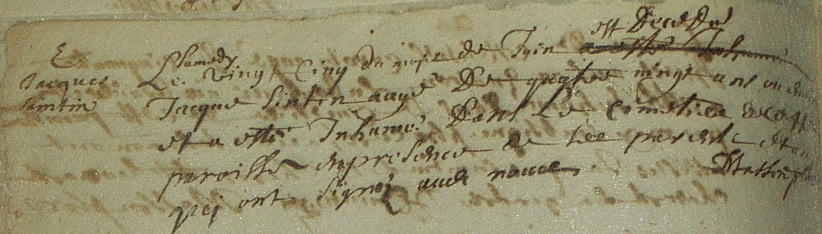 est Decedé
E. Samedy
Jacques Le vingt Cinq du mois de Juin a esté Inhumé
Jacque Sinten aagé De quatre vingt ans ou
et a esté Inhumé Dans Le Cimetiere de
paroisse en presence de parents et
qui ont signé avec nous